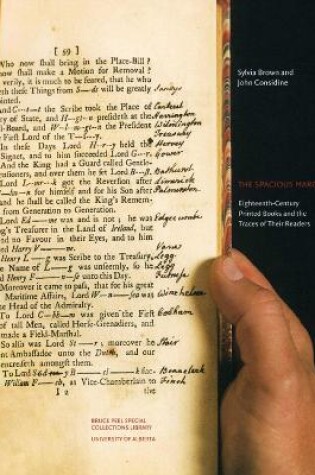 [ 59 ]
Who now shall bring in the Place-Bill?
now shall make a Motion for Removal?
verily, it is much to be feared, that he who
eth these Things from S—ds will be greatly Sandys
ointed.
And C—t—t the Scribe took the Place of Carteret
y of State, and H—gt—n presideth at the Harrington
il-Board, and W—lm—gt—n the President Wilmington
e First Lord of the T—f—y. Treasury
In these Days Lord H—y held the Hervey
Signet, and to him succeeded Lord G—r. Gower
And the King had a Guard called Gentle-
ensioners, and over them he set Lord B—ft Bathurst
Lord L—m—k got the Reversion after Limerick
n—a for himself and for his Son after Palmerston
and he shall be called the King's Remem-
from Generation to Generation.
Lord Ed—me was and is not; he was Edgecumbe
ng's Treasurer in the Land of Ireland, but
nd no Favour in their Eyes, and to him
ed Harry V—ne. Vane
Henry L—g was Scribe to the Treasury, Legg
he Name of L—g was unseemly, so he Legg
d Henry F—e unto this Day. Furnese
Moreover it came to pass, that for his great
Maritime Affairs, Lord W—n sea was Winchelsea
he Head of the Admiralty.
To Lord C—b—m was given the First Cobham
of tall Men, called Horse-Grenadiers, and
made a Field-Marshal.
So also was Lord St—r; moreover he Stair
nt Ambassador unto the Dutch, and our
encreaseth amongst them.
To Lord Sid y B—cl—k suc-
William F—ch, as Vice-Chamberlain to Finch
I 2 the
Sylvia Brown and
John Considine
THE SPACIOUS MAR
Eighteenth-Century
Printed Books and the
Traces of Their Readers
BRUCE PEEL SPECIAL
COLLECTIONS LIBRARY
UNIVERSITY OF ALBERTA